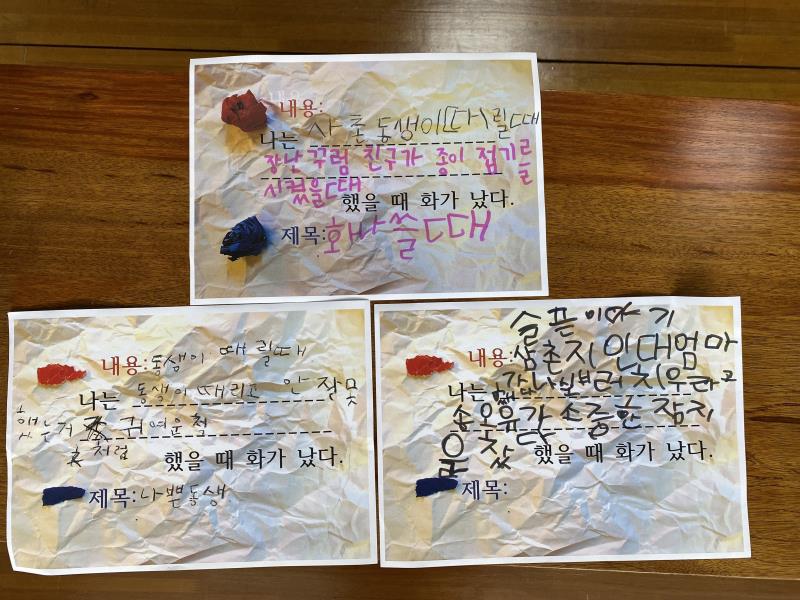 내용:
나는 사촌동생이 때릴때
장난꾸럼 친구가 종이 접기를
시켰을때
했을 때 화가 났다.
제목:화나쓸때
내용:동생이 때릴때
나는 동생이 때리고 안 잘못
했는거 귀여운척
처럼
했을 때 화가 났다.
제목:나쁜동생
슬픈이야기
내용:삼촌지인대엄마
나는 갑나실부러치우라고
송옷유각소중한장지
못찼
했을 때 화가 났다.
제목: